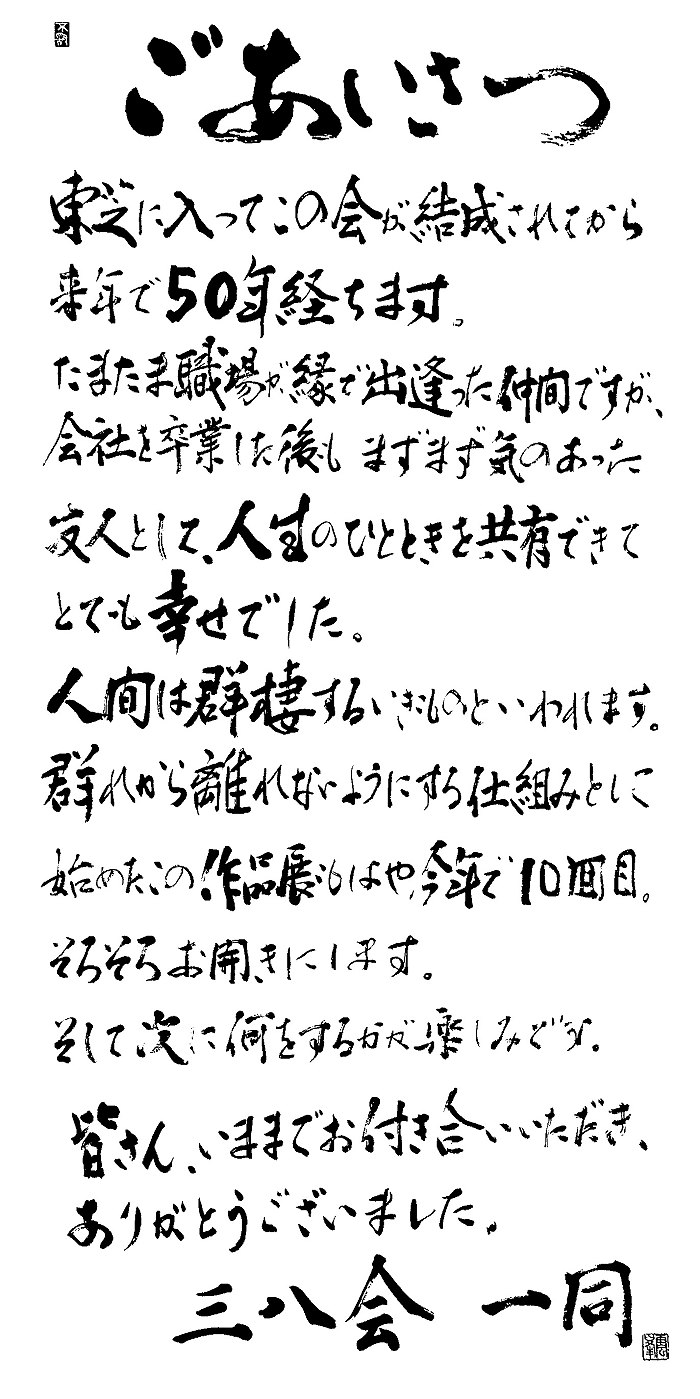 ごあいさつ
東芝に入ってこの会が結成されてから
来年で50年経ちます。
たまたま職場が縁で出逢った仲間ですが、
会社を卒業した後も まずまず気のあった
友人として、人生のひとときを共有できて
とても幸せでした。
人間は群棲するいきものといわれます。
群れから離れないようにする仕組みとして
始めたこの作品展もはや今年で10回目。
そろそろお開きにします。
そして次に何をするかが楽しみどす。
皆さん、いままでお付き合いいただき、
ありがとうございました。
三八会 一同